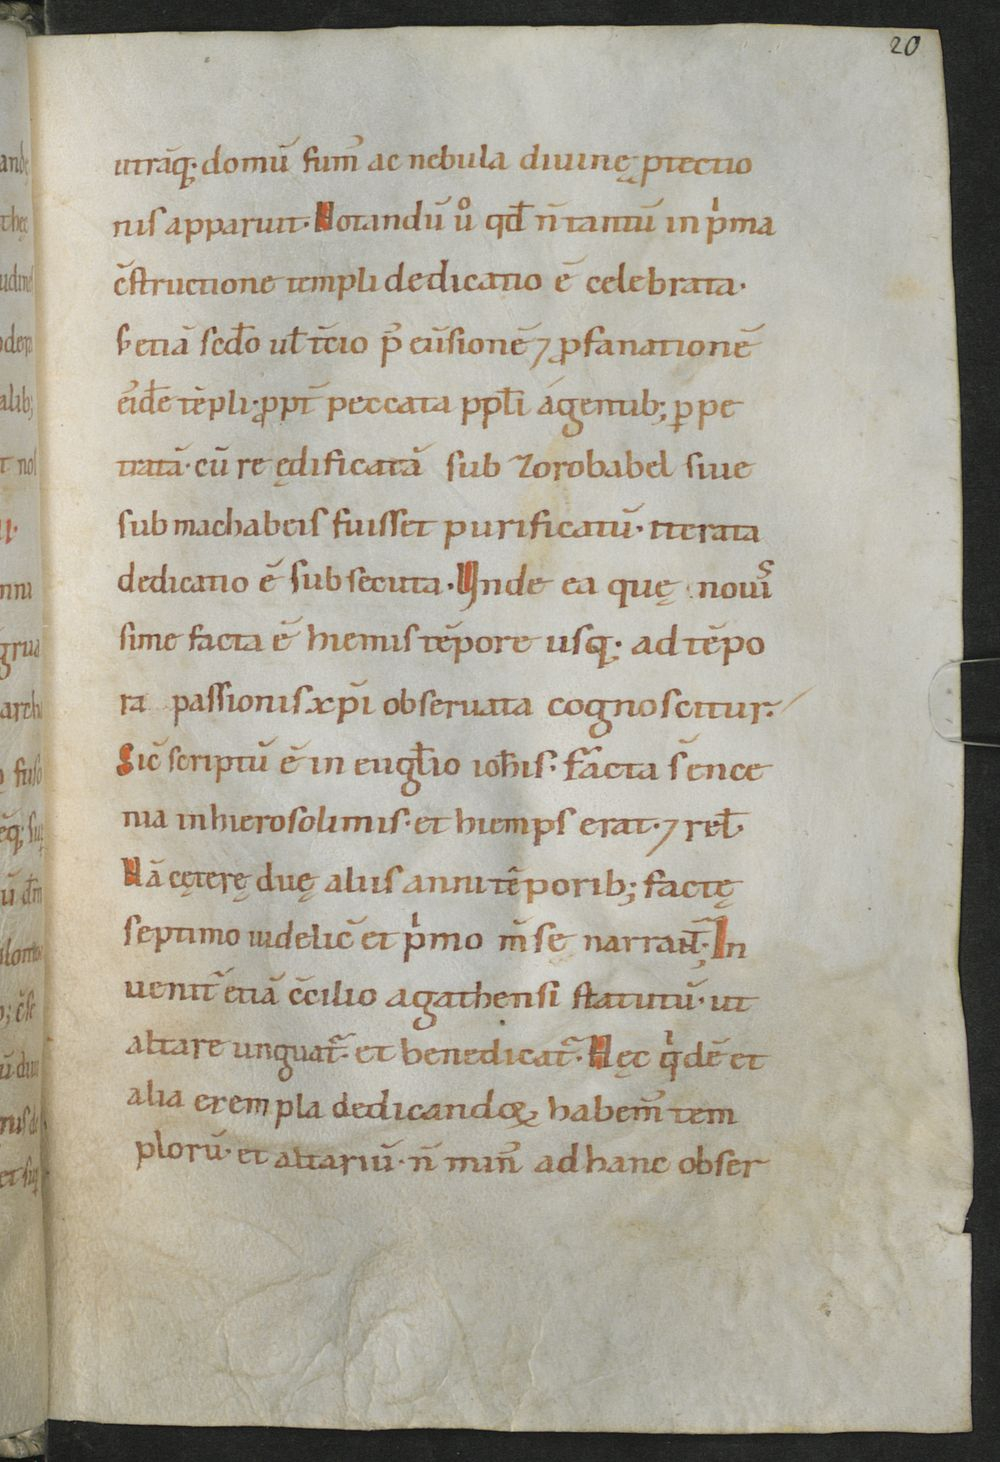 20
utrāq; domū fum̄ ac nebula diuinę ꝓtectio
nis apparuit. Notandū ů qđ n̄ tantū in p̍ma
c̄structione templi dedicatio ē celebrata.
s; etiā scđo ul̄ t̄cio p̄ eu̅sionē ⁊ ꝓfanationē
eiđe tēpli ꝓpt̄ peccata pptī a gentib; ꝑpe
tratā. cū re ędificatā sub zorobabel siue
sub machabeis fuisset purificatū. iterata
dedicatio ē subsecuta. Vnde ea quę nouiſ
sime facta ē hiemis tēpore usq; ad tēpo
ra passionis xp̄i obseruata cognoscitur.
Sic̄ scriptū ē in eugl̄io ioħis. facta s̄ ence
nia in hierosolimis. et hiemps erat. ⁊ rel̄.
Nā cęterę duę aliis anni tēporib; factę
septimo uidelic̄ et p̍mo m̄sę narrant̄. In
uenit̄ etiā c̄cilio agathensi statutū. ut
altare unguat̄. et benedicat̄. Hęc q̍dē et
alia exempla dedicandoꝝ habem̄ tem
plorū. et altariū. n̄ min̄ ad hanc obser